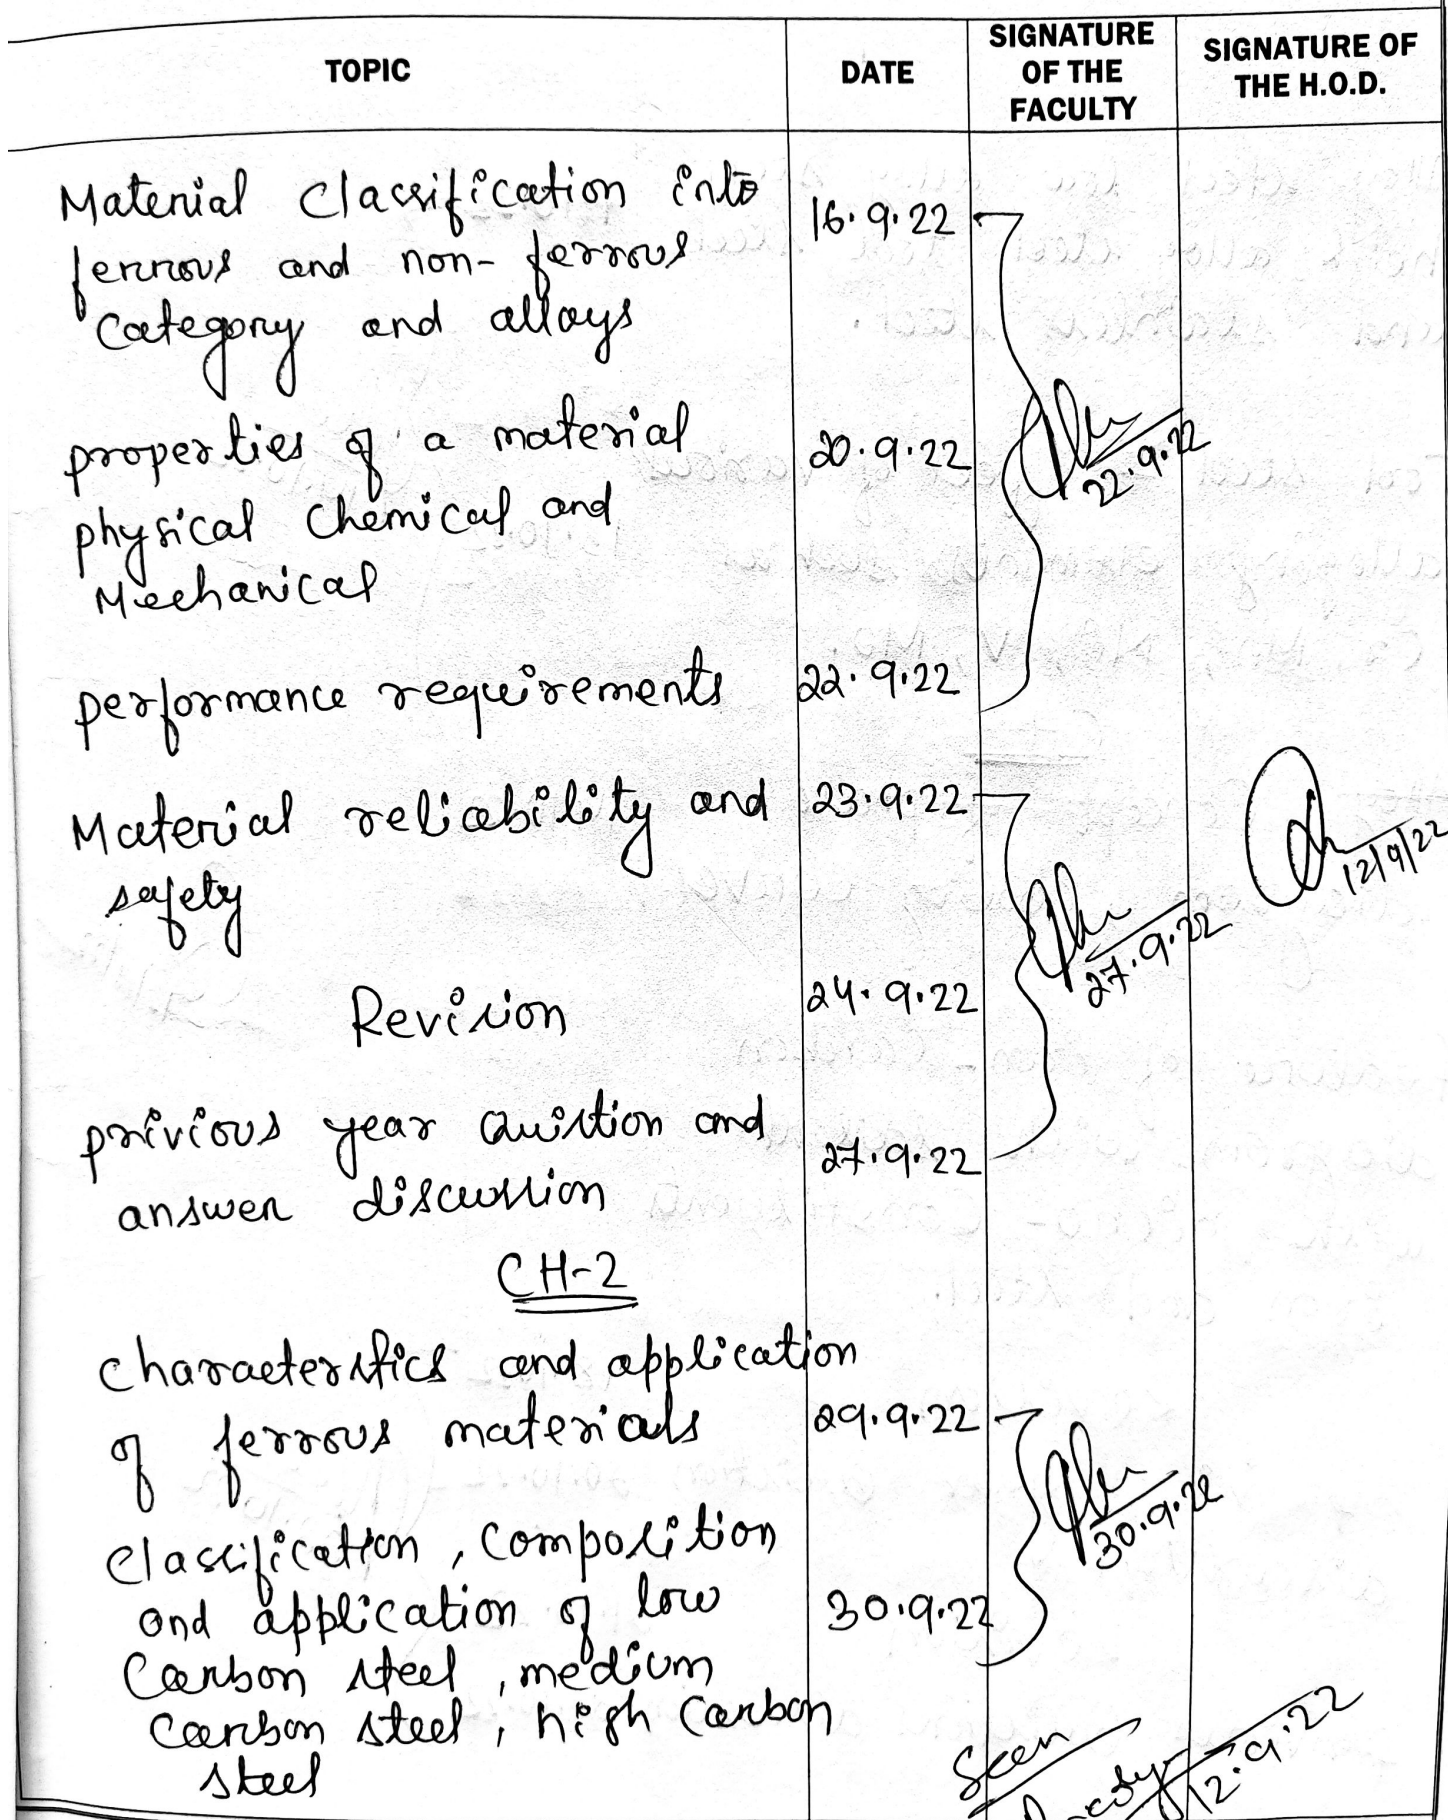 TOPIC
DATE
SIGNATURE
OF THE
FACULTY
SIGNATURE OF
THE H.O.D.
Material Classification into
ferrous and non-ferrous
Category and alloys
16.9.22
properties of a material
physical Chemical and
Mechanical
20.9.22
22.9.22
performance requirements
22.9.22
Material reliability and
safety
23.9.22
12/9/22
27.9.22
Revision
24.9.22
privious year Quistion and
answer discussion
27.9.22
CH-2
Characteristics and application
of ferrous materials
29.9.22
30.9.22
Classification, Composition
and application of low
Carbon steel, medium
Carbon steel, high Carbon
steel
30.9.22
Seen
12.9.22